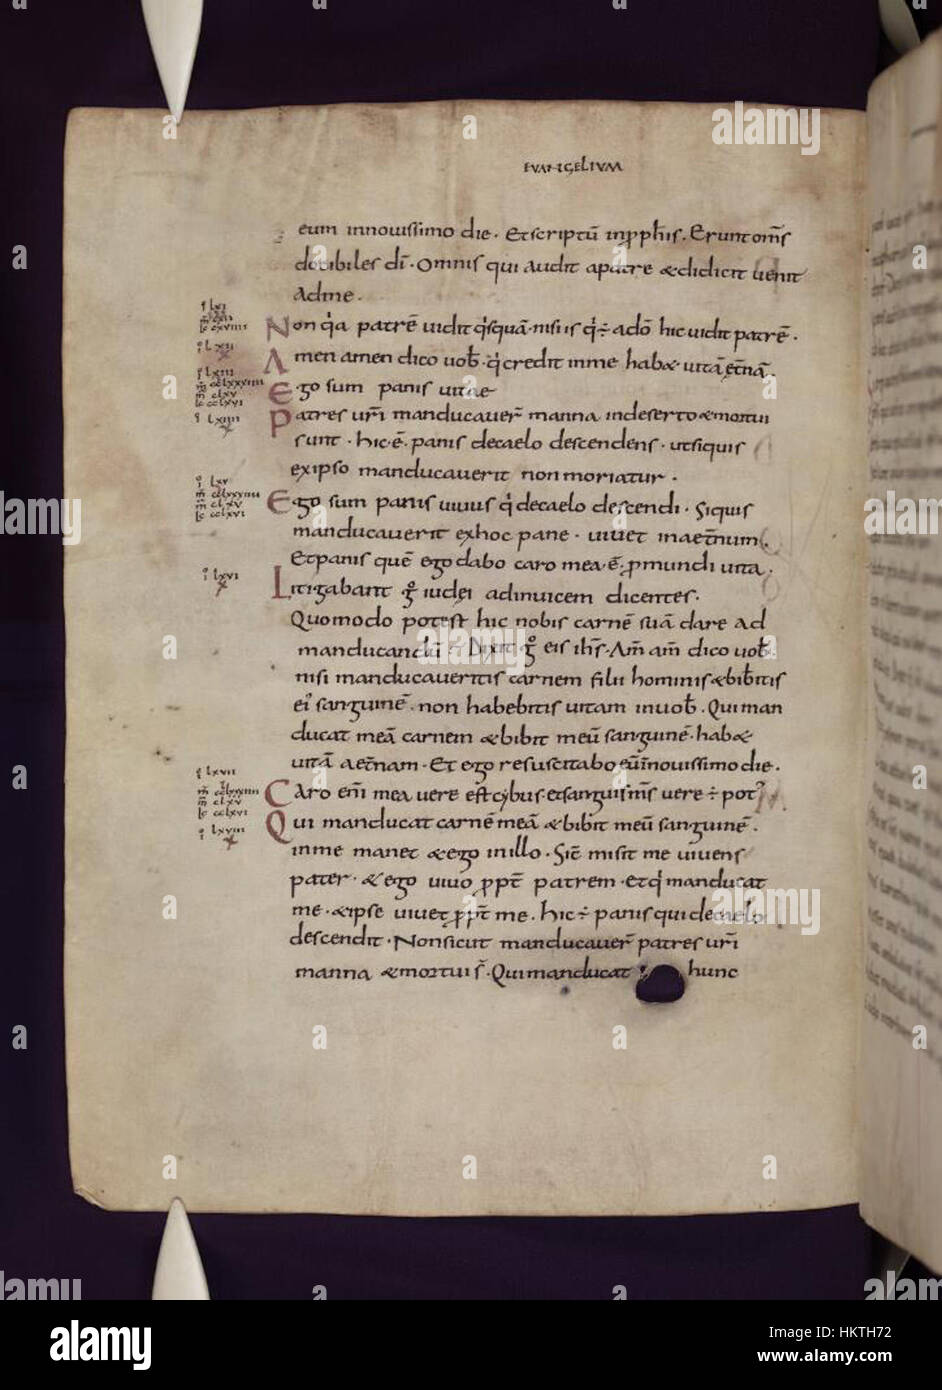 EVANGELIUM
eum innovissimo die. Etscriptū inpph̄is. Erunt om̄s
docibiles dī. Omnis qui audit apatre &didicit venit
adme.
Non q̇a patrē vidit q̇squā. nisi is q̇ ÷ adō hic vidit patrē.
Amen amen dico vob̄. q̇ credit inme hab& vitā &t̄nā.
Ego sum panis vitae
Patres vr̄i manducaver̄ manna indeserto &mortui
sunt. hic ē panis decaelo descendens. utsiquis
exipso manducaverit non moriatur.
Ego sum panis vivus q̇ decaelo descendi. Siquis
manducaverit exhoc pane. vivet inaet̄num.
Etpanis quē ego dabo caro mea ē. pmundi vita.
Litigabant g̊ iudęi adinuicem dicentes.
Quomodo potest hic nobis carnē suā dare ad
manducandū. Dixit g̊ eis ih̄s. Am̄ am̄ dico vob̄.
nisi manducaveritis carnem filii hominis &bibitis
ei' sanguinē. non habebitis vitam invob̄. Qui man
ducat meā carnem &bibit meū sanguinē. hab&
vitā aet̄nam. Et ego resuscitabo eū innovissimo die.
Caro em̄i mea vere est cybus. etsanguis m̄s vere ÷ pot'
Qui manducat carnē meā &bibit meū sanguinē.
inme manet &ego inillo. Sic̄ misit me vivens
pater. &ego vivo ppt̄ patrem. etq̇ manducat
me. &ipse vivet ppt̄ me. hic ÷ panis qui decaelo
descendit. Nonsicut manducaver̄ patres vr̄i
manna &mortui s̄. Qui manducat hunc
lxi
lxii
lxiii
lxiiii
lxv
lxvi
lxvii
lxviii
alamy
a
alamy
Image ID: HKTH72
www.alamy.com